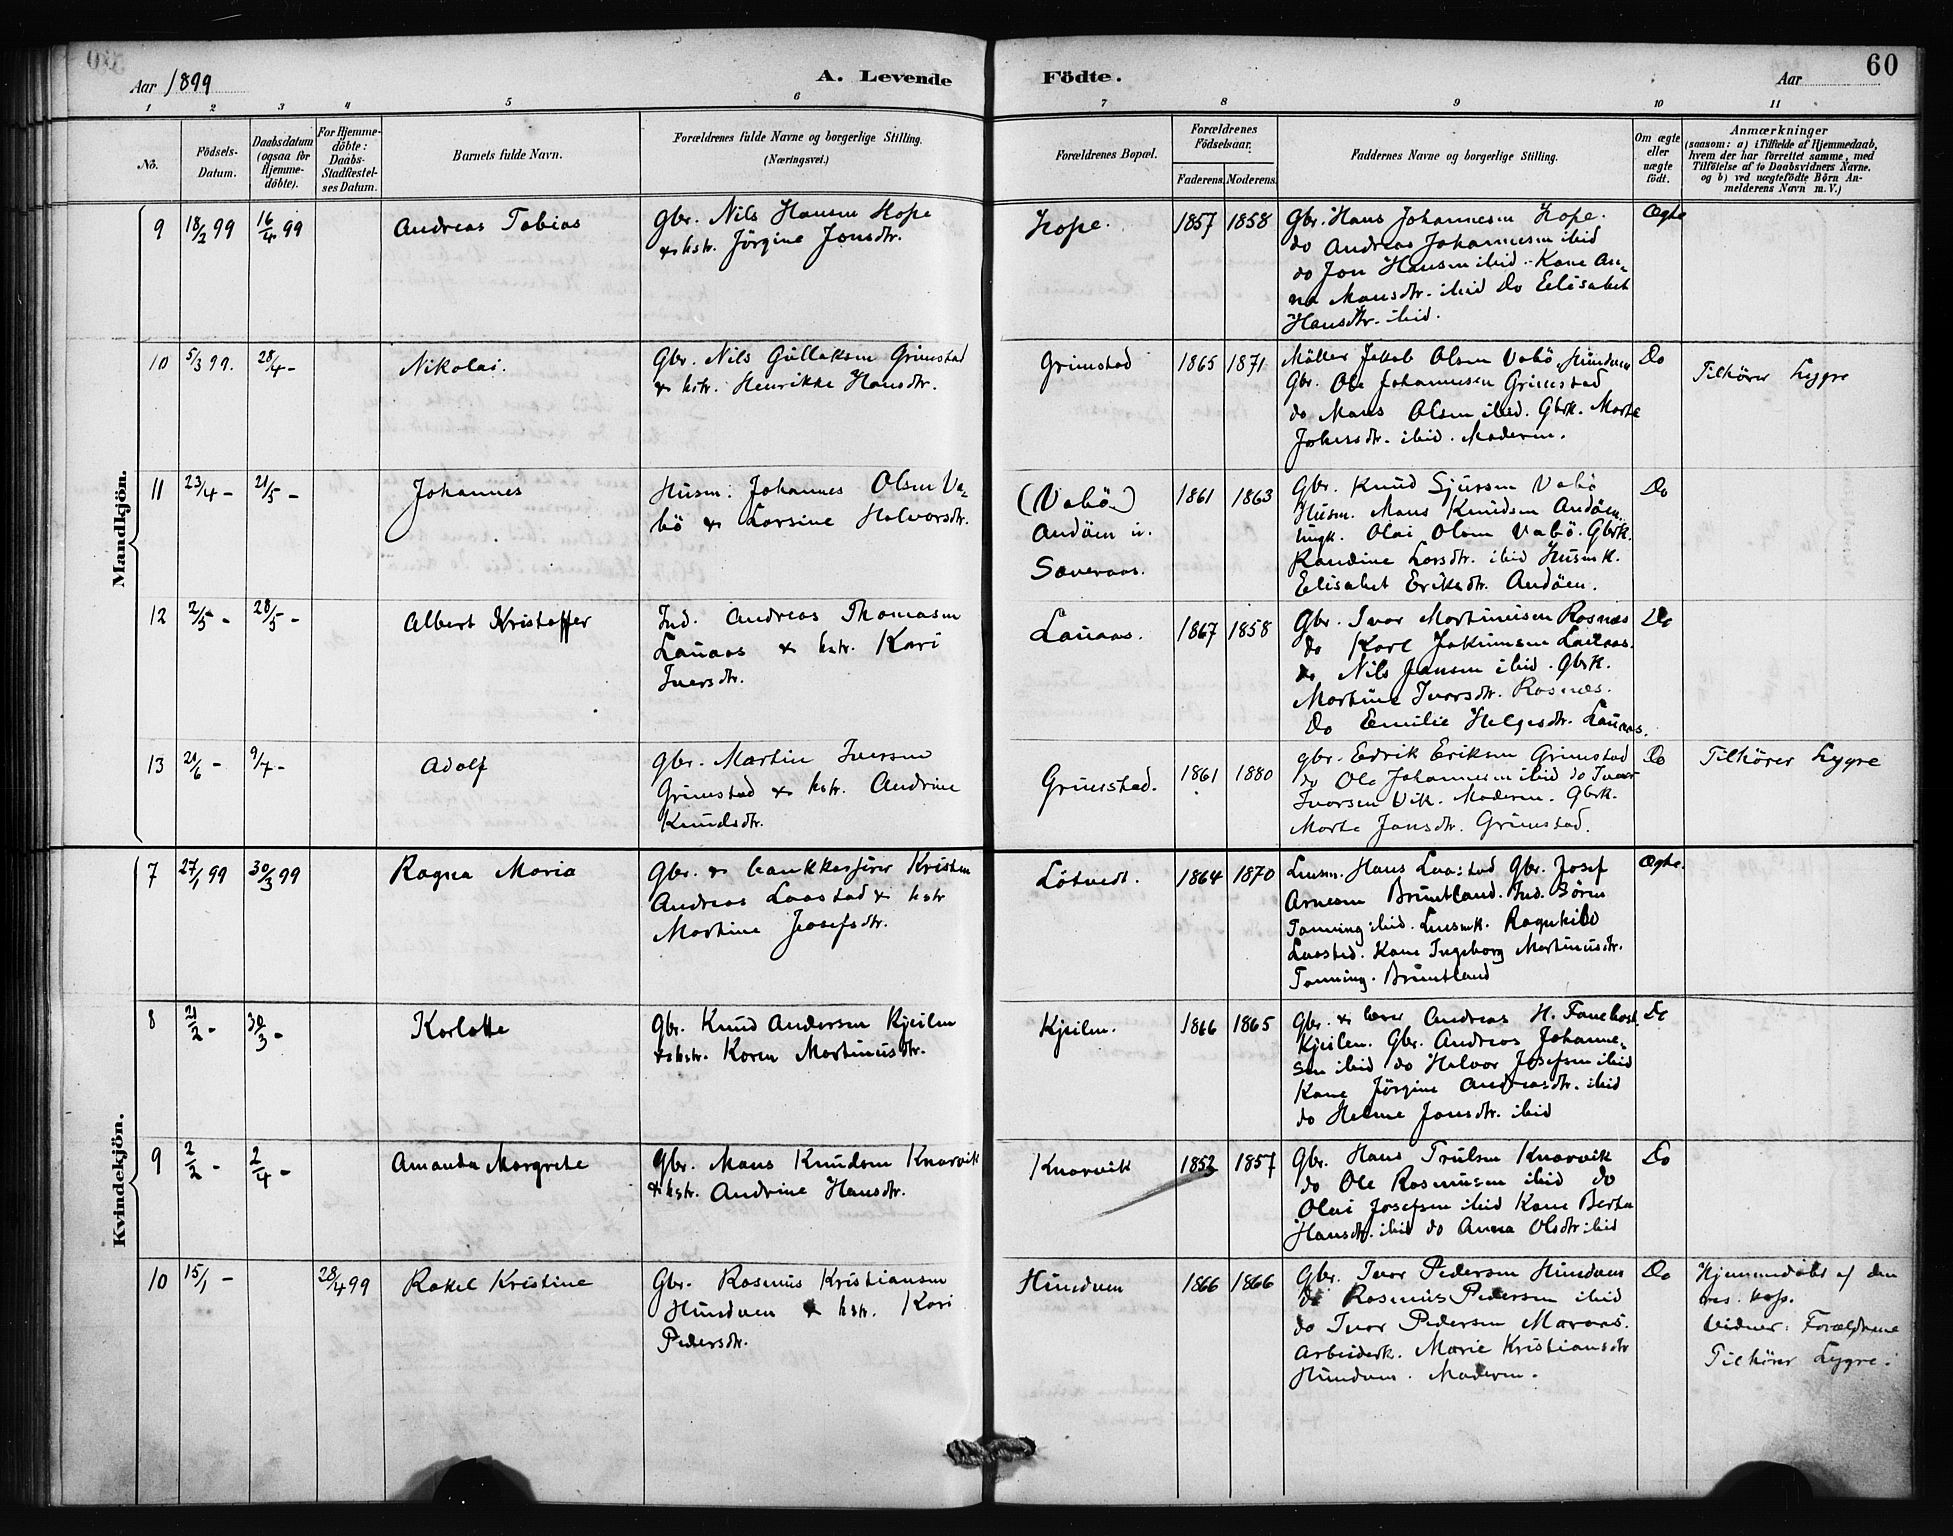 Aar 1899
A. Levende Födte.
Aar
60
1 2 3 4 5 6 7 8 9 10 11
Nö.
Födsels-Datum.
Daabsdatum (ogsaa for Hjemmedöbte).
For Hjemmedöbte: Daabs-Stadfæstelses Datum.
Barnets fulde Navn.
Forældrenes fulde Navne og borgerlige Stilling.
(Næringsvei.)
Forældrenes Bopæl.
Forældrenes Födselsaar.
Faderens. Moderens.
Faddernes Navne og borgerlige Stilling.
Om ægte eller uægte födt.
Anmærkninger
(saasom: a) i Tilfælde af Hjemmedaab, hvem der har forrettet samme, med Tilföielse af to Daabsvidners Navne. og b) ved uægtefödte Börn Anmelderens Navn m. V.)
Mandkjön.
9 18/2 99 16/4 99 Andreas Tobias
Gbr. Nils Hansen Hope
& hstr. Jörgine Jonsdtr.
Hope. 1857 1858
Gbr. Hans Johannesen Hope.
do Andreas Johannesen ibid
do Jon Hansen ibid. Kone An-
na Mansdtr. ibid do Elisabet
Hansdtr. ibid.
Ægte
10 5/3 99. 28/4 - Nikolai.
Gbr. Nils Gullaksen Grimstad
& hstr. Henrikke Hansdtr.
Grimstad 1865 1871
Möller Jakob Olsen Vabö Hundven
Gbr. Ole Johannesen Grimstad
do Mans Olsen ibid. Gbrk. Marta
ibid. Moderen.
Do
Tilhörer Lygre
11 23/4 - 21/5 - Johannes
Husm. Johannes Olsen Va-
bö & Larsine Halvorsdtr.
(Vabö)
Andöen u.
Saveraas.
1861 1863
Gbr. Knud Sjursen Vabö
Husm. Mans Knudsen Andöen.
Ungk. Olai Olsen Vabö. Gbrk.
Randine Larsdtr. ibid Husmk.
Elisabet Eriksdtr. Andöen.
Do
12 2/5 - 28/5 - Albert Kristoffer
Ind. Andreas Thomasen
Lauaas & hstr. Kari
Iversdtr.
Lauaas. 1867 1858
Gbr. Ivar Martinusen Rosnæs
do Karl Jakimsen Lauaas.
do Nils Jansen ibid. Gbrk.
Martine Ivarsdtr. Rosnæs.
Do Emilie Helgesdtr. Lauaas.
Do
13 21/6 - 9/7 - Adolf
Gbr. Martin Iversen
Grimstad & hstr. Andrine
Knudsdtr.
Grimstad. 1861 1880
Gbr. Edrik Eriksen Grimstad
do Ole Johannesen ibid do Ivar
Ivarsen Vik. Moderen. Gbrk.
Marta Jansdtr. Grimstad.
Do
Tilhörer Lygre
Kvindekjön.
7 27/1 99 30/3 99 Ragna Maria
Gbr. & bankkasserer Kristen
Andreas Laastad & hstr
Martine Josefsdtr.
Lötvedt. 1864 1870
Lensm. Hans Laastad Gbr. Josef
Arnesen Bruntland. Ind. Sören
Tonning ibid. Lensmk. Ragnhild
Laastad. Kone Ingeborg Martinusdtr.
Tonning. Bruntland
Ægte.
8 21/2 - 30/3 - Karlotte
Gbr. Knud Andersen Kjeilen
& hstr. Karen Martinusdtr.
Kjeilen. 1866 1865
Gbr. & lærer Andreas H. Fanebost
Kjeilen. Gbr. Andreas Johanne-
sen ibid do Halvor Josefsen ibid
Kone Jörgine Andreasdtr. ibid
do Helene Jonsdtr. ibid
Do
9 2/2 - 2/4 - Amanda Margrete
Gbr. Mans Knudsen Knarvik
& hstr. Andrine Hansdtr.
Knarvik 1852 1857
Gbr. Hans Trulsen Knarvik
do Ole Rasmusen ibid do
Olai Josefsen ibid Kone Berta
Hansdtr. ibid do Anna Olsdtr ibid
Do
10 15/1 - 28/4 99 Rakel Kristine
Gbr. Rasmus Kristiansen
Hundven & hstr. Kari
Pedersdtr.
Hundven 1866 1866
Gbr. Ivar Pedersen Hundven
do Rasmus Pedersen ibid
do Ivar Pedersen Maraas.
Arbeiderk. Marie Kristiansdtr
Hundven. Moderen.
Do
Hjemmedöbt af den
res. kap.
Vidner: Forældrene
Tilhörer Lygre.